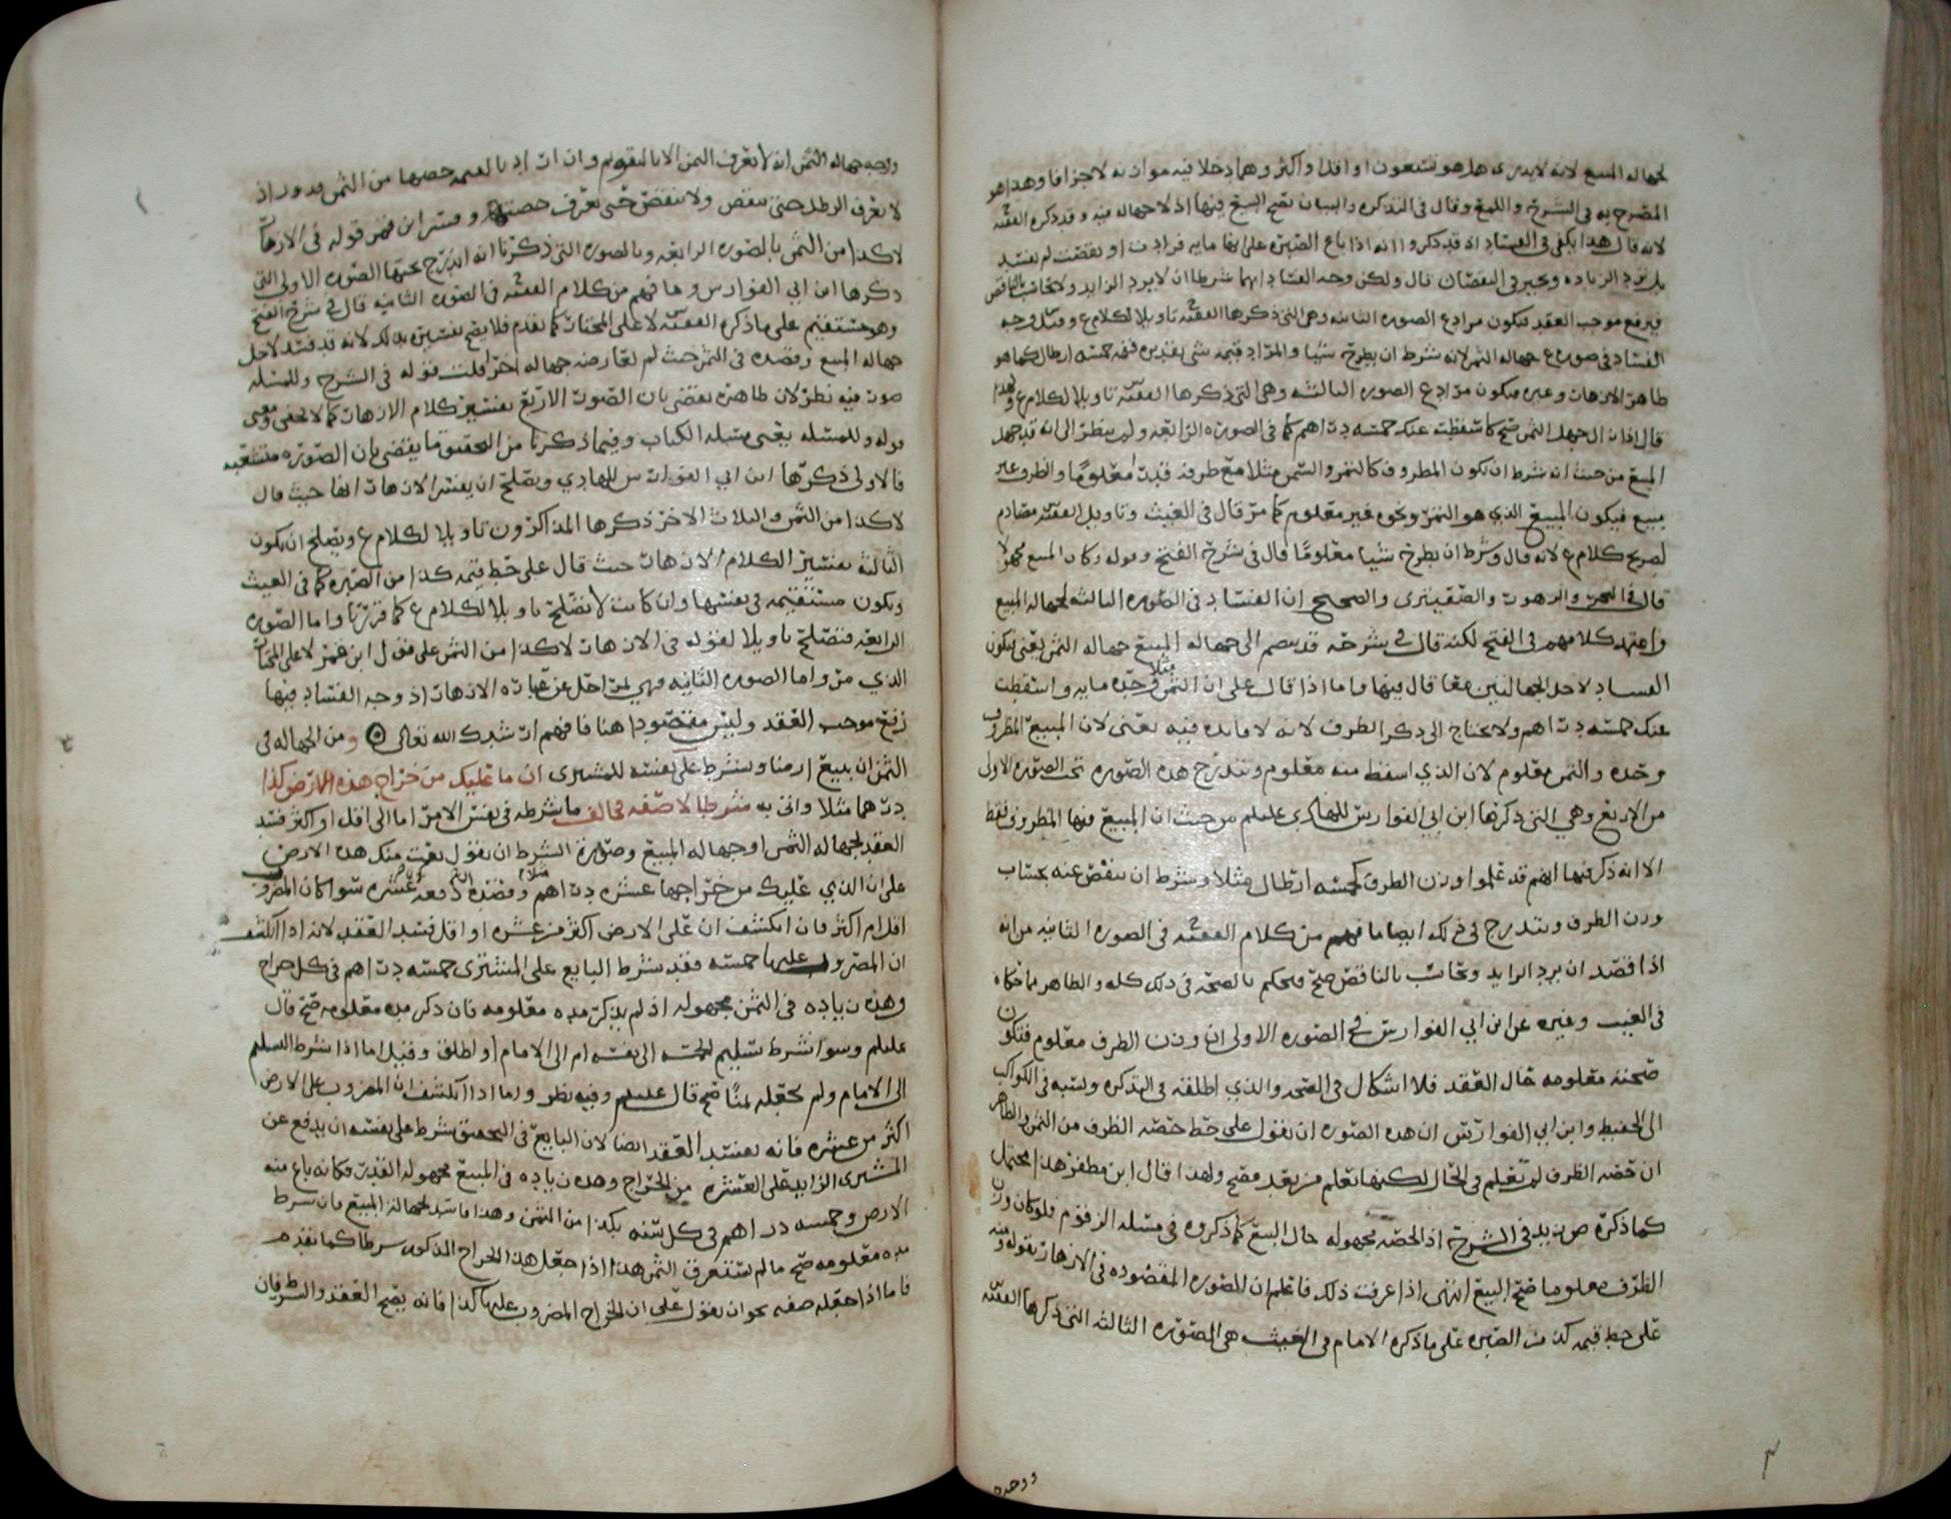 لجهاله المبيع لانه لا يدرى هل هو تسعون او اقل او اكثر وهما دخلا فيه موازنه لا جزافا وهذا هو
المصرح به في الشرح واللمع وقال في التذكره والبيان يصح البيع فيها اذ لا جهاله فيه وقد ذكره الفقيه
لانه قال هذا يكفى فى الفساد اذ قد ذكروا انه اذا باع الصبره على انها مايه فزادت او نقصت لم يفسد
بل يرد الزياده ويخير في النقصان قال ولكن وجه الفساد انهما شرطا ان لا يرد الزايد ولا يحاسب بالناقص
فيرفع موجب العقد فيكون مراد ع الصوره الثانيه وهى التى ذكرها الفقيه تاويلا لكلام ع وقيل وجه
الفساد في صوره ع جهاله الثمن لانه شرط ان يطرح شيا والمراد قيمه شى تقديره قيمه خمسه ارطال كما هو
ظاهر الازهار وغيره فيكون مراد ع الصوره الثالثه وهى التى ذكرها الفقيه تاويلا لكلام ع ولهذا
قال اذا زال جهل الثمن صح كاسقطت عنك خمسه دراهم كما فى الصوره الرابعه ولم ينظر الى انه قد جهل
المبيع من حيث انه شرط ان يكون المظروف كالتمر والسمن مثلا مع ظرفه قدرا معلوما والظرف غير
مبيع فيكون المبيع الذي هو التمر ونحوه غير معلوم كما مر قال في الغيث وتاويل الفقيه مصادم
لصريح كلام ع لانه قال وشرط ان يطرح شيا معلوما قال في شرح الفتح وقوله وكان المبيع مجهولا
قال في البحر والزهور والصعيتري والصحيح ان الفساد في الصوره الثالثه لجهاله المبيع
واعتمد كلامهم فى الفتح لكنه قال في شرحه قد ينضم الى جهاله المبيع جهاله الثمن يعنى فيكون
الفساد لاجل الجهالتين معا قال فيها واما اذا قال على ان التمر مثلا وحده مايه واسقطت
عنك خمسه دراهم ولا يحتاج الى ذكر الظرف لانه لا فايده فيه يعنى لان المبيع المظروف
وحده والثمن معلوم لان الذي اسقط منه معلوم وتندرج هذه الصوره تحت الصوره الاولى
من الاربع وهي التى ذكرها ابن ابي الفوارس للهادى عليلم من حيث ان المبيع فيها المظروف فقط
الا انه ذكر فيها انهم قد علموا وزن الظرف كخمسه ارطال مثلا وشرط ان ينقص عنه بحساب
وزن الظرف ويندرج في ذلك ايضا ما فهم من كلام الفقيه فى الصوره الثانيه من انه
اذا قصد ان يرد الزايد ويحاسب بالناقص صح فيحكم بالصحه في ذلك كله والظاهر مما حكاه
فى الغيث وغيره عن ابن ابي الفوارس في الصوره الاولى ان وزن الظرف معلوم فتكون
صحته معلومه حال العقد فلا اشكال فى الصحه والذي اطلقه في التذكره ونسبه في الكواكب
الى الحفيظ وابن ابي الفوارس ان هذه الصوره ان يقول على حط حصه الظرف من الثمن والظاهر
ان حصه الظرف لم تعلم في الحال لكنها تعلم من بعد فصح ولهذا قال ابن مظفر هذا محتمل
كما ذكره ص زيد فى الشرح اذ الحصه مجهوله حال البيع كما ذكروه في مسئله الرقوم فلو كان وزن
الظرف معلوما صح البيع انتهى اذا عرفت ذلك فاعلم ان الصوره المقصوده فى الازهار بقوله ومنه
على حط قيمه كذا من الصبره على ما ذكره الامام في الغيث هي الصوره الثالثه التى ذكرها الفقيه
ووجه
ووجه جهاله الثمن انه لا يعرف الثمن الا بالتقويم وان اراد بالقيمه حصتها من الثمن فدور اذ
لا يعرف الرطل حتى ينقص ولا ينقص حتى يعرف حصته وفسر ابن فهر قوله فى الازهار
لا كذا من الثمن بالصوره الرابعه وبالصوره التى ذكرنا انه اندرج تحتها الصوره الاولى التى
ذكرها ابن ابي الفوارس وما فهم من كلام الفقيه فى الصوره الثانيه قال في شرح الفتح
وهو مستقيم على ما ذكره الفقيه لا على المختار كما تقدم فلا يصح تفسيره بذلك لانه قد فسد لاجل
جهاله المبيع وقصده فى الثمن حيث لم تعارضه جهاله اخرى قلت قوله في الشرح وللمسئله
صور فيه نظر لان ظاهره يقضى بان الصور الاربع تفسير كلام الازهار كما لا يخفى ومعنى
قوله وللمسئله يعنى مسئله الكتاب وفيما ذكرنا من التحقيق ما يقضى بان الصوره منشعبه
فالاولى ذكرها ابن ابي الفوارس للهادي ويصلح ان يفسر الازهار ايضا حيث قال
لا كذا من الثمن والثلاث الاخر ذكرها المذاكرون تاويلا لكلام ع ويصلح ان يكون
الثالثه تفسير الكلام الازهار حيث قال على حط قيمه كذا من الصبره كما فى الغيث
وتكون مستقيمه فى نفسها وان كانت لا تصلح تاويلا لكلام ع كما قررنا واما الصوره
الرابعه فتصلح تاويلا لقوله فى الازهار لا كذا من الثمن على قول ابن فهر لا على المختار
الذي مر واما الصوره الثانيه فهي بمراحل عن عباره الازهار اذ وجه الفساد فيها
رفع موجب العقد وليس مقصودا هنا فافهم ارشدك الله تعالى ومن الجهاله في
الثمن ان يبيع ارضا ويشرط على نفسه للمشترى ان ما عليك من خراج هذه الارض كذا
درهما مثلا واتى به شرطا لا صفه فخالف ما شرطه فى نفس الامر اما الى اقل او اكثر فسد
العقد لجهاله الثمن او جهاله المبيع وصوره الشرط ان يقول بعت منك هذه الارض
على ان الذي عليك من خراجها عشره دراهم مثلا وقصده انه دفعه عشره سوا كان المضروب
اقل ام اكثر فان انكشف ان على الارض اكثر من عشره او اقل فسد العقد لانه اذا انكشف
ان المضروب عليها خمسه فقد شرط البايع على المشترى خمسه دراهم فى كل خراج
وهذه زياده فى الثمن مجهوله اذ لم يذكر مده معلومه فان ذكر مده معلومه صح قال
عليلم وسوا شرط تسليم الخمسه الى نفسه ام الى الامام او اطلق وقيل اما اذا شرط التسليم
الى الامام ولم يجعله ثمنا صح قال عليلم وفيه نظر واما اذا انكشف ان المضروب على الارض
اكثر من عشره فانه يفسد العقد ايضا لان البايع في التحقيق شرط على نفسه ان يدفع عن
المشترى الزايد على العشره من الخراج وهذه زياده فى المبيع مجهوله القدر فكانه باع منه
الارض وخمسه دراهم في كل سنه بكذا من الثمن وهذا فاسد لجهاله المبيع فان شرط
مده معلومه صح ما لم تستغرق الثمن هذا اذا جعل هذا الخراج المذكور شرطا كما تقدم
فاما اذا جعله صفه نحو ان يقول على ان الخراج المضروب عليها كذا فانه يصح العقد والشرط فان